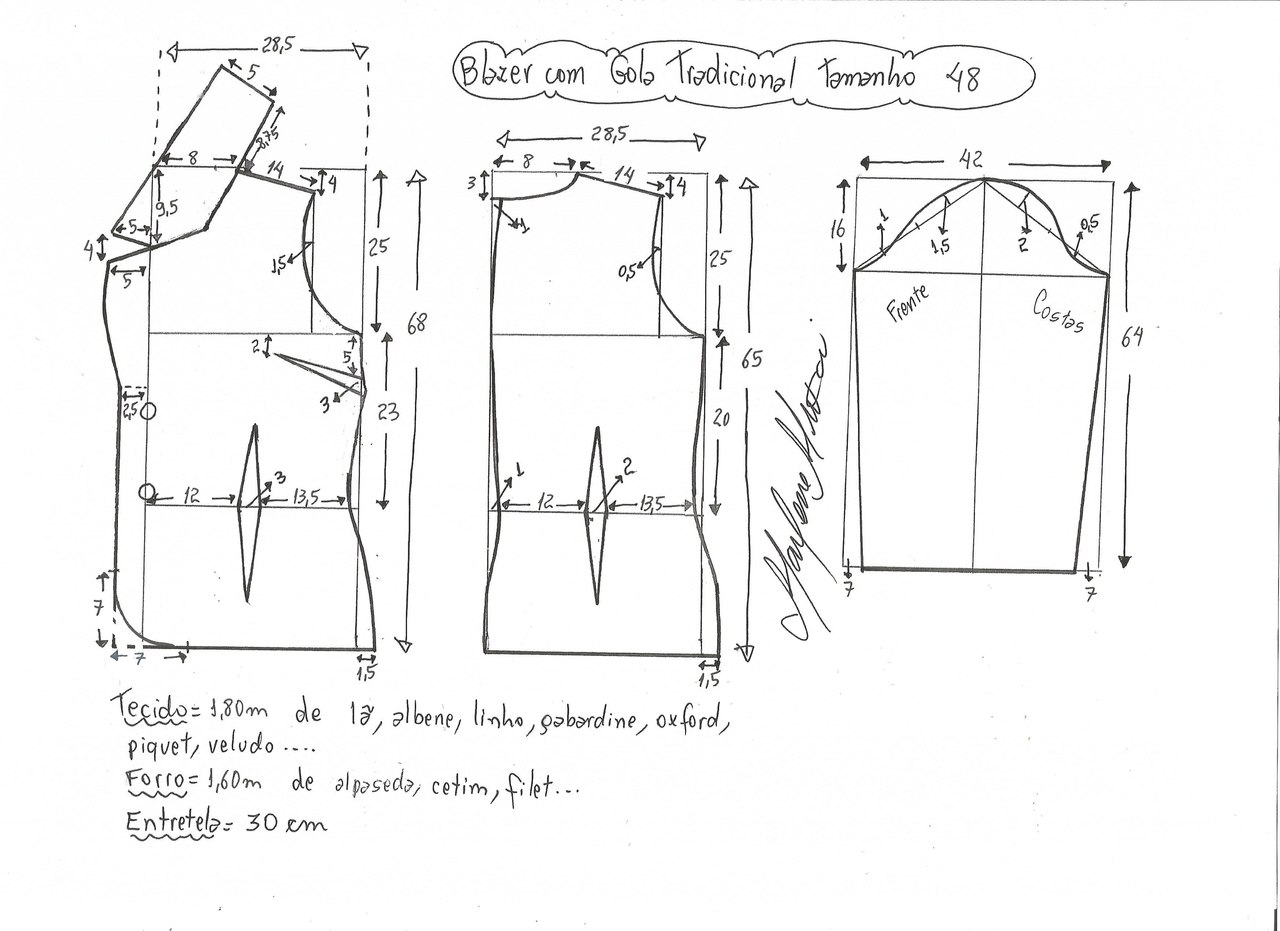 Blazer com Gola Tradicional tamanho 48
28,5
5
8,75
8
14
4
9,5
5
4
5
1,5
25
68
2
5
3
2,5
23
12
3
13,5
7
7
1,5
28,5
8
14
4
3
1
0,5
25
65
20
1
12
2
13,5
1,5
42
16
1
1,5
2
0,5
Frente
Costas
64
7
7
Marlene Mukai
Tecido = 1,80m de lã, albene, linho, gabardine, oxford,
piquet, veludo ....
Forro = 1,60m de alpaseda, cetim, filet...
Entretela = 30 cm